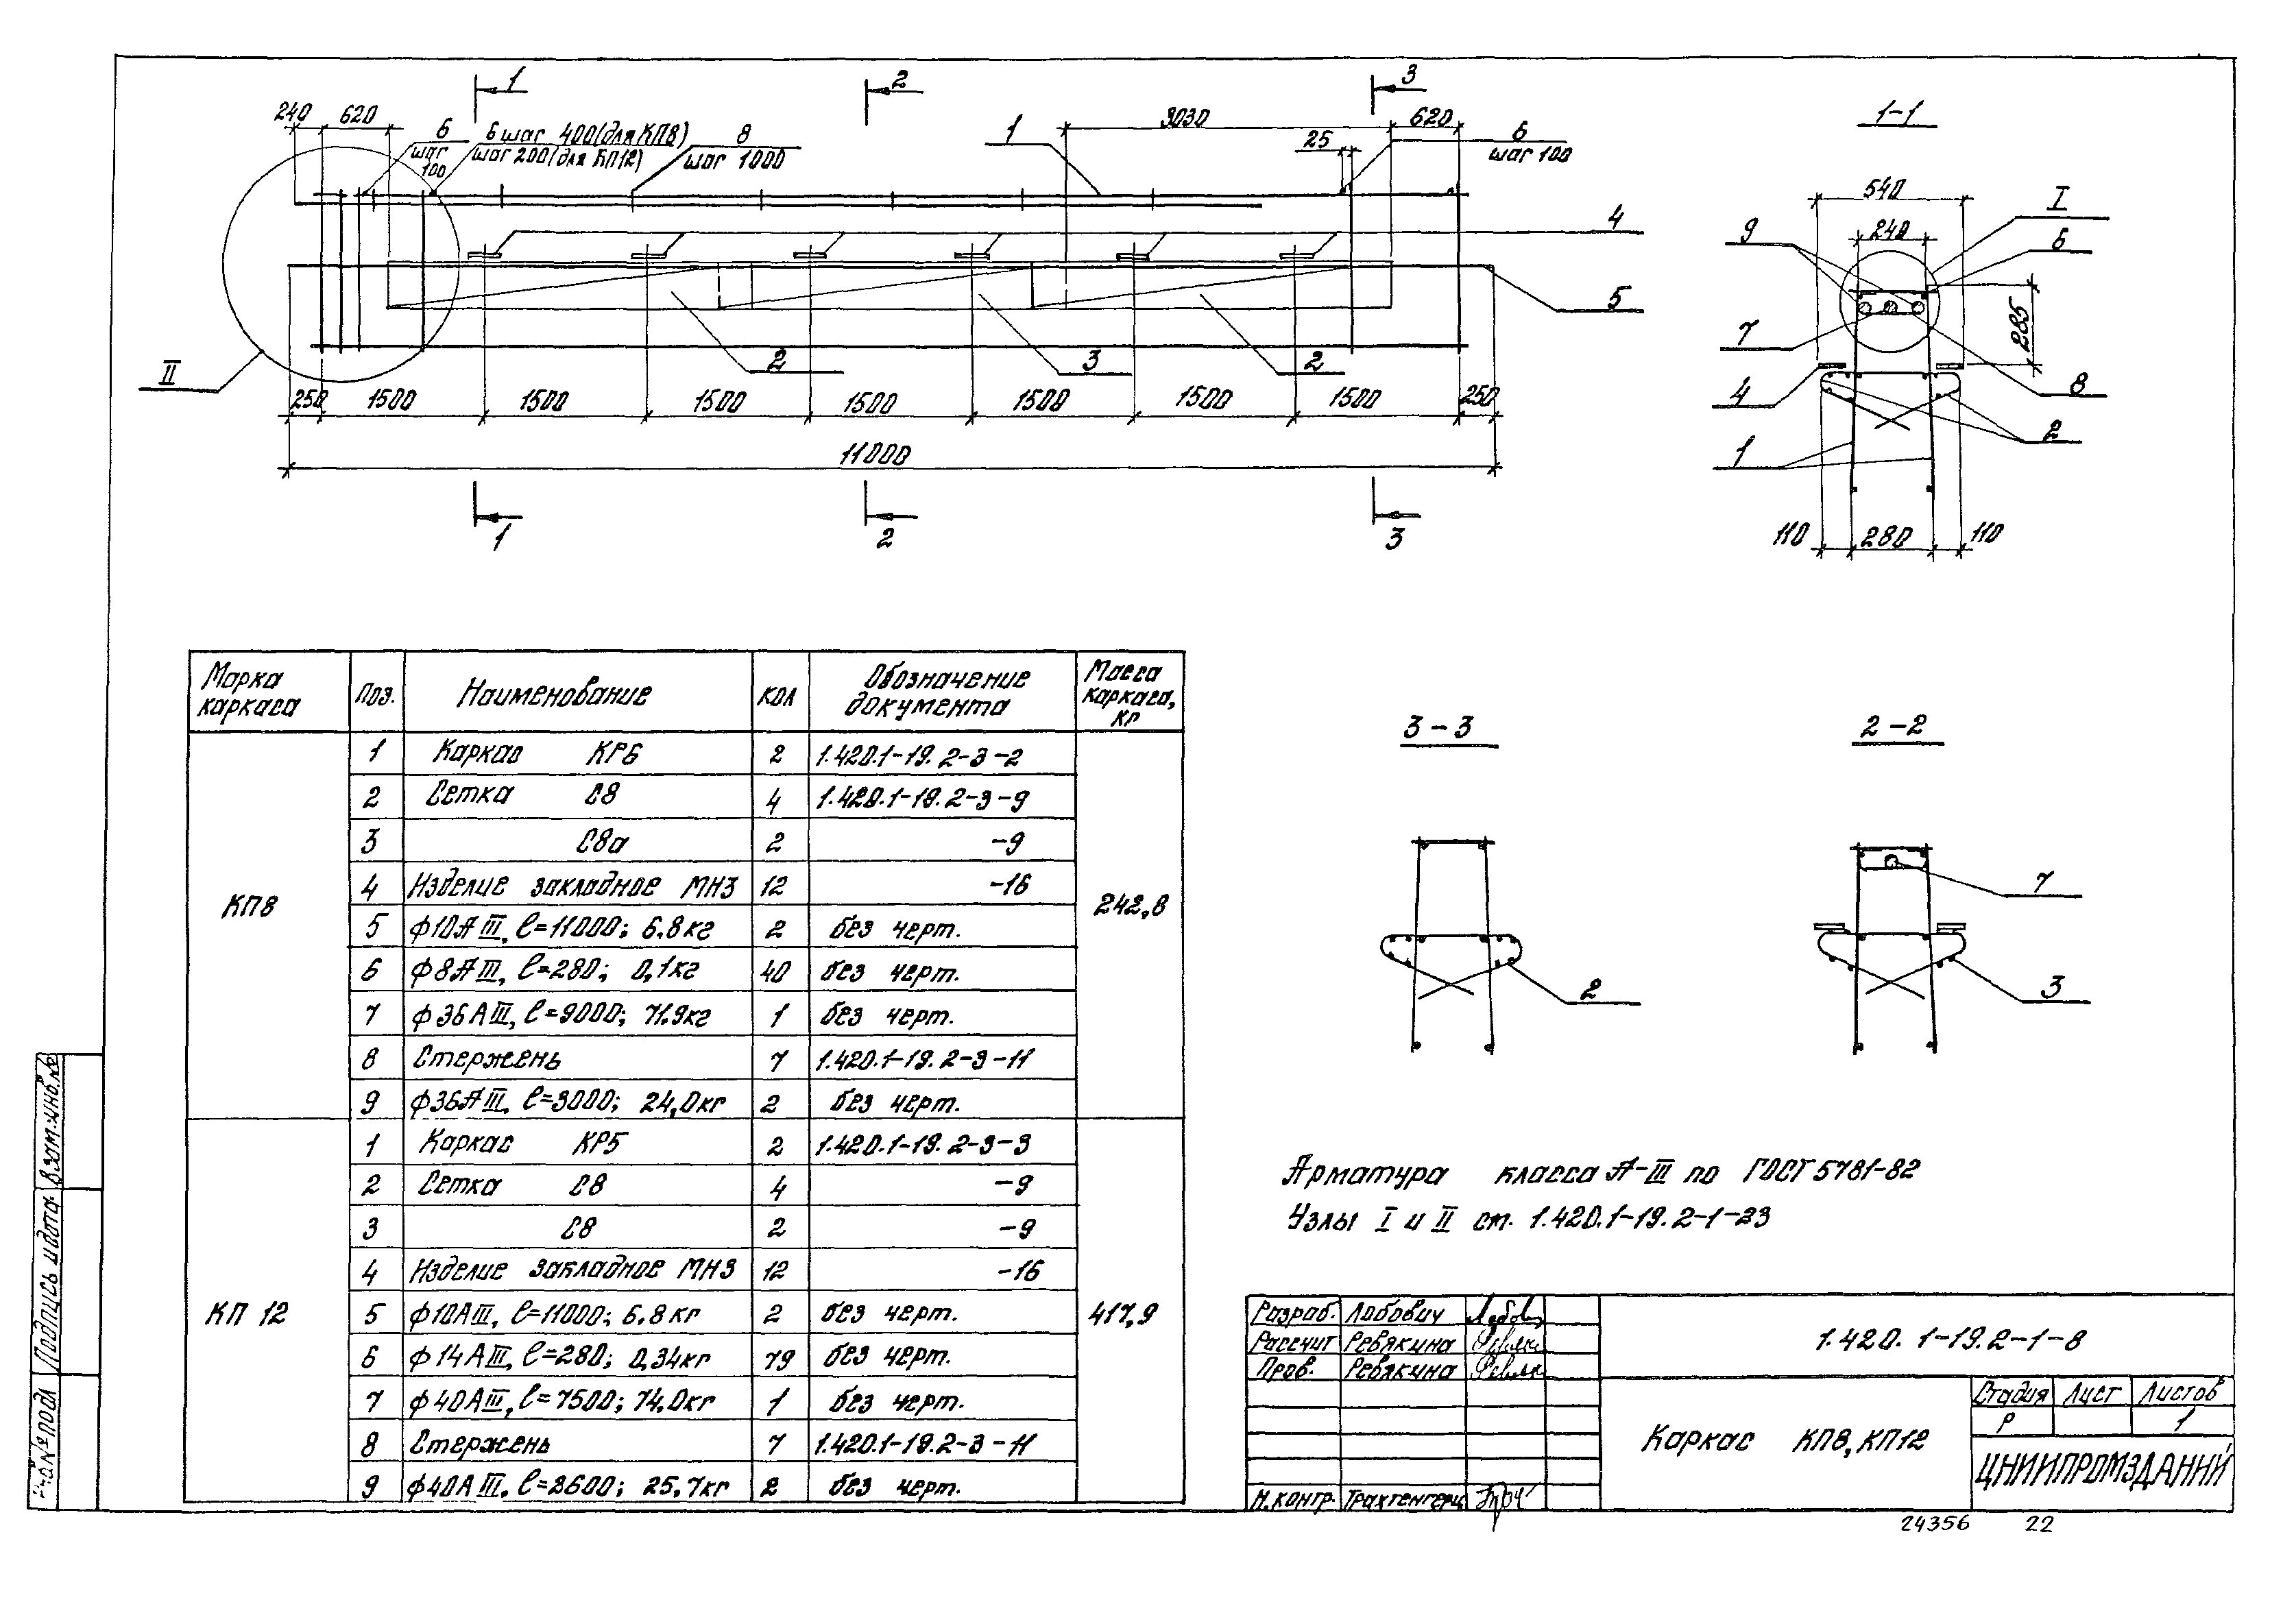 1 2 3
240 620 3030 620
6 шаг 100
6 шаг 400 (для КП8)
шаг 200 (для КП12)
8 шаг 1000
1
25
6 шаг 100
4
5
II
2 3 2
250 1500 1500 1500 1500 1500 1500 1500 250
11000
1 2 3
1-1
540
I
9 240 6
7 285
4 8
2
1
110 280 110
3-3
2
2-2
7
3
Марка каркаса Поз. Наименование Кол Обозначение документа Масса каркаса, кг
КП8 242,8
1 Каркас КР6 2 1.420.1-19.2-3-2
2 Сетка С8 4 1.420.1-19.2-3-9
3 С8а 2 -9
4 Изделие закладное МН3 12 -16
5 ф10АIII, ℓ=11000; 6.8кг 2 без черт.
6 ф8АIII, ℓ=280; 0,1кг 40 без черт.
7 ф36АIII, ℓ=9000; 71.9кг 1 без черт.
8 Стержень 7 1.420.1-19.2-3-11
9 ф36АIII, ℓ=3000; 24,0кг 2 без черт.
КП 12 417,9
1 Каркас КР5 2 1.420.1-19.2-3-3
2 Сетка С8 4 -9
3 С8 2 -9
4 Изделие закладное МН3 12 -16
5 ф10АIII, ℓ=11000; 6.8кг 2 без черт.
6 ф14АIII, ℓ=280; 0,34кг 79 без черт.
7 ф40АIII, ℓ=7500; 74.0кг 1 без черт.
8 Стержень 7 1.420.1-19.2-3-11
9 ф40АIII, ℓ=2600; 25,7кг 2 без черт.
Арматура класса А-III по ГОСТ 5781-82
Узлы I и II см. 1.420.1-19.2-1-23
Разраб. Лобович
Рассчит Ревякина
Пров. Ревякина
Н.контр. Трахтенгерц
1.420.1-19.2-1-8
Каркас КП8, КП12
Стадия Лист Листов
Р 1
ЦНИИПРОМЗДАНИЙ
24356 22
Взам.инв.№
Подпись и дата
Инв.№подл